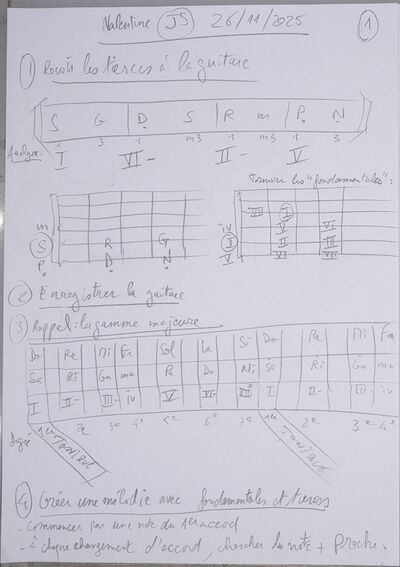 Valentine JS 26/11/2025 1
1 Revoir les tierces à la guitare
S G D S R m P N
3 1 m3 1 m3 1 3
Analyse: I VI- II- V
Trouver les "fondamentales":
m
S R G
P D N
iv III I
I V VI
V II III
V VII
2 Enregistrer la guitare
3 Rappel: la gamme majeure
Do Re Mi Fa Sol La Si Do Re Mi Fa
Sa Ri Ga ma Pa Da Ni Sa Ri Ga ma
I II- III- iv V VI- VII I II- III- iv
Degré 1er 2e 3e 4e 5e 6e 7e 1er 2e 3e 4e
TONIQUE TONIQUE
4 Créer une mélodie avec fondamentales et tierces
- commencer par une note du 1er accord
- à chaque changement d'accord, chercher la note + proche.